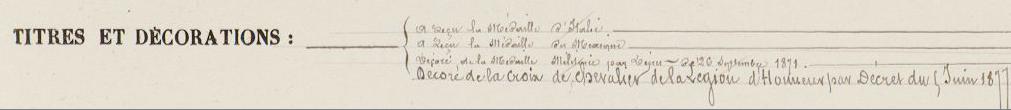 TITRES ET DÉCORATIONS :
a reçu la Médaille d'Italie
a reçu la Médaille du Mexique
Décoré de la Médaille Militaire par 20 Septembre 1871
Décoré de la Croix de Chevalier de la Légion d'Honneur par Décret du 5 Juin 1877